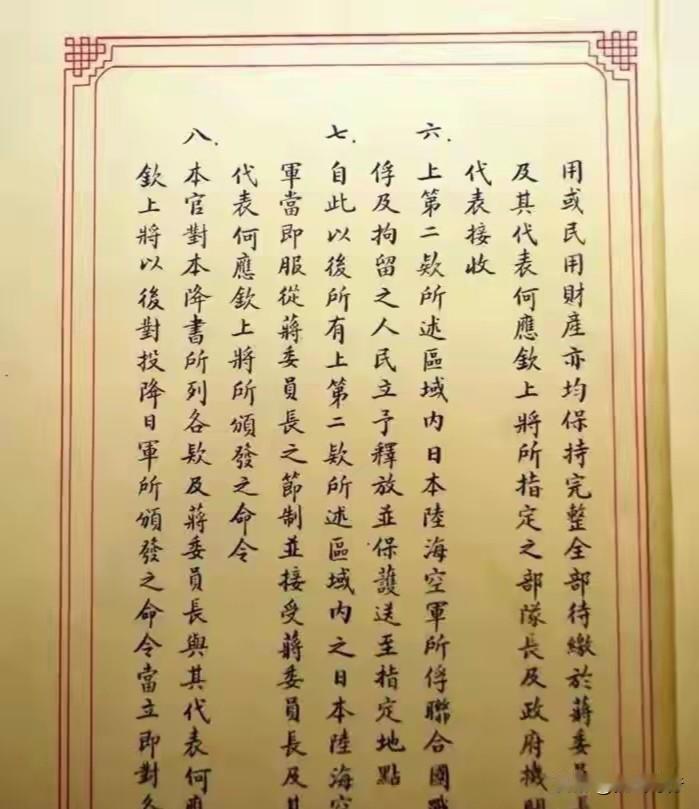 用或民用財產亦均保持完整全部待繳於蔣委員長
及其代表何應欽上將所指定之部隊長及政府機
代表接收
六.上第二款所述區域內日本陸海空軍所俘聯合國戰
俘及拘留之人民立予釋放並保護送至指定地點
七.自此以後所有上第二款所述區域內之日本陸海空
軍當即服從蔣委員長之節制並接受蔣委員長及其
代表何應欽上將所頒發之命令
八.本官對本降書所列各款及蔣委員長與其代表何應
欽上將以後對投降日軍所頒發之命令當立即對各